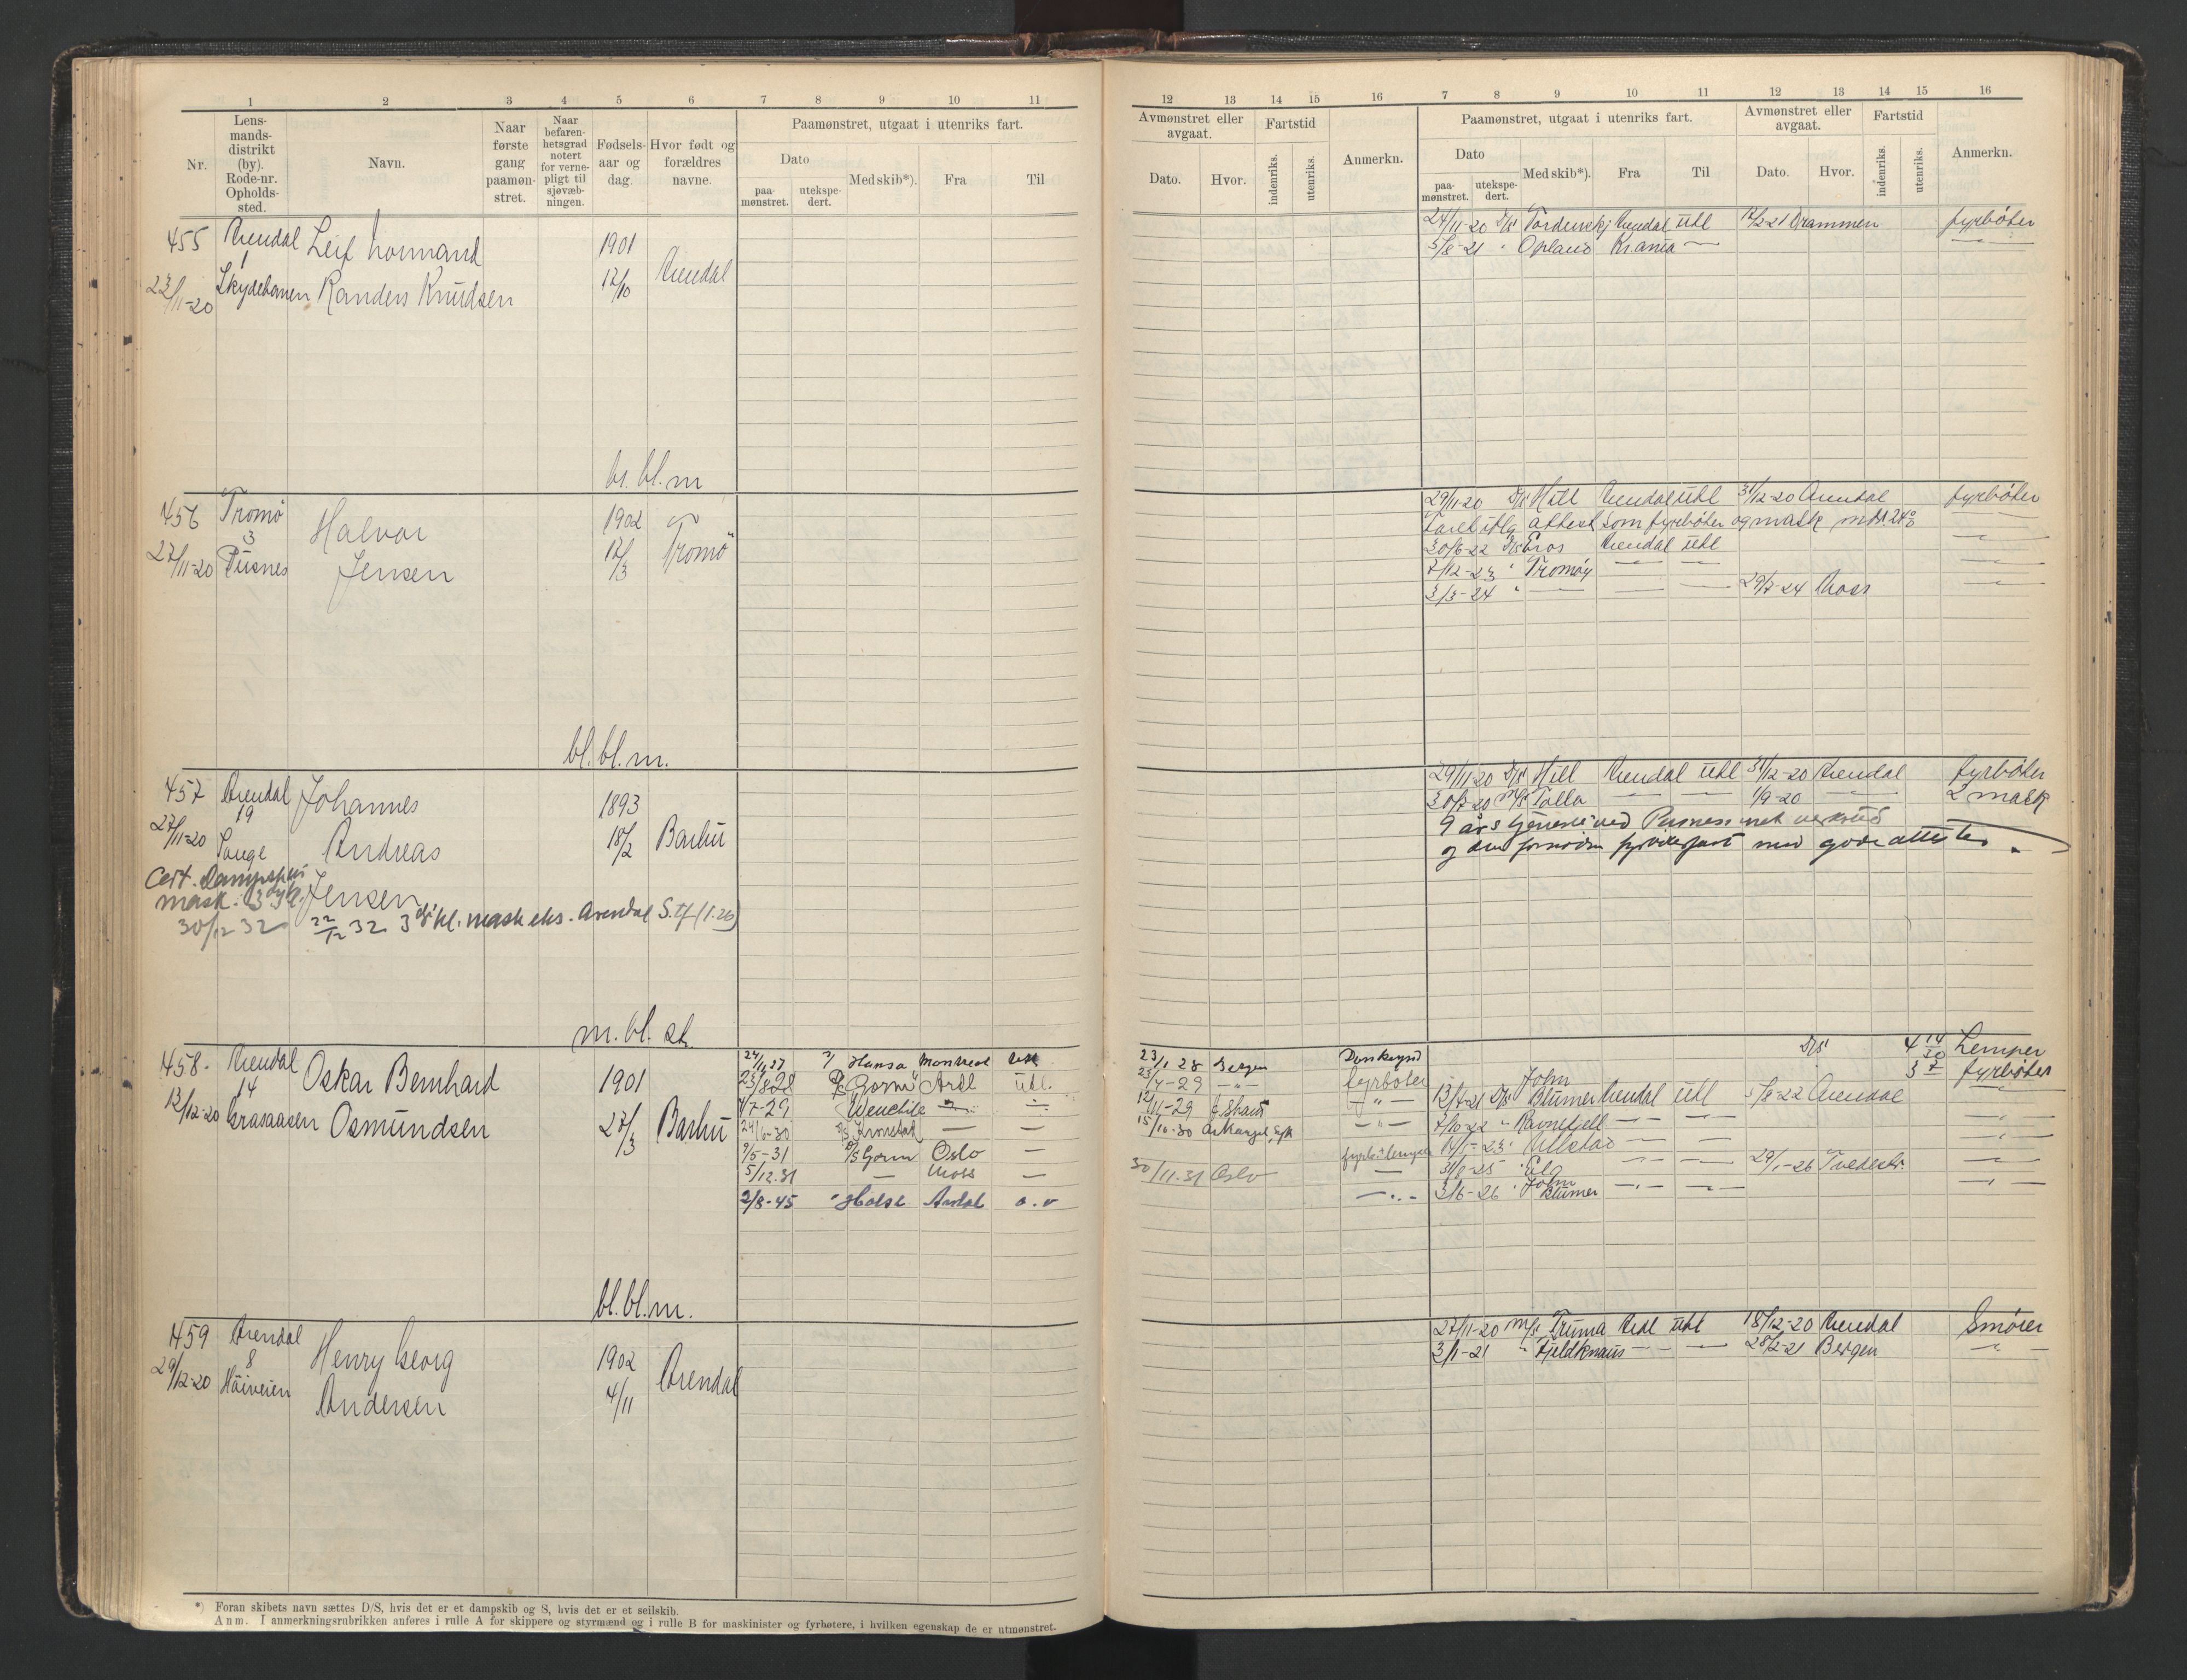 1 2 3 4 5 6 7 8 9 10 11
Nr.
Lens-
mands-
distrikt
(by).
Rode-nr.
Opholds-
sted.
Navn.
Naar
første
gang
paamøn-
stret.
Naar
befaren-
hetsgrad
notert
for verne-
pligt til
sjøvæb-
ningen.
Fødsels-
aar og
dag.
Hvor født og
forældres
navne.
Paamønstret, utgaat i utenriks fart.
Dato
paa-
mønstret.
utekspe-
dert.
Med skib*).
Fra
Til
455 Arendal Leif Normand 1901
1
23/11-20 Skydebanen Randers Knudsen 12/10 Arendal
br. bl. m
456 Tromø Halvor 1902 Tromö
3
27/11-20 Pusnes Jensen 12/3
bl. bl. m.
457 Arendal Johannes 1893
19
27/11-20 Songe Andreas 18/2 Barbu
Cert.
mask. 3 Jensen
30/12 32 22/12 32 3dje kl. mask eks. Arendal S.
m. bl. st.
458. Arendal Oskar Bernhard 1901
14
13/12-20 Græsaasen Osmundsen 27/3 Barbu
24/11 27 Hansa Montreal utl
23/8-28 D/S Gorm Ardl utl.
4/7-29
24/6-30
9/5-31 D/S Gorm Oslo —
5/12.31 — Moss —
2/8-45 " Arendal
bl. bl. m.
459 Arendal Henry Georg 1902
8
29/12-20 Höiveien Andersen 4/11 Arendal
*) Foran skibets navn sættes D/S, hvis det er et dampskib og S, hvis det er et seilskib.
Anm. I anmerkningsrubrikken anføres i rulle A for skippere og styrmænd og i rulle B for maskinister og fyrbøtere, i hvilken egenskap de er utmønstret.
12 13 14 15 16 7 8 9 10 11 12 13 14 15 16
Avmønstret eller
avgaat.
Dato.
Hvor.
Fartstid
indenriks.
utenriks.
Anmerkn.
Paamønstret, utgaat i utenriks fart.
Dato
paa-
mønstret.
utekspe-
dert.
Med skib*).
Fra
Til
Avmønstret eller
avgaat.
Dato.
Hvor.
Fartstid
indenriks.
utenriks.
Anmerkn.
24/11-20 D/S Tordenskj Arendal utl 12/2-21 Drammen fyrbøter
5/8-21 " Opland Krania — "
29/11-20 D/S Hill Arendal utl 31/12-20 Arendal fyrbøter
attest som fyrbøter og mask
30/6-22 D/S Eros Arendal utl — " —
7/12-23 " Tromøy — " — — " —
3/3-24 " — — — 29/7-24 Moss
29/11-20 D/S Hill Arendal utl 31/12-20 Arendal fyrbøter
30/7-20 m/s Tolla — " — — " — 1/9-20 — " — 2 mask
9 års tjeneste ved Pusnes mek verksted
med gode attester.
D/S 4 14/20 Lemper
3 7 fyrbøter
23/1 28 Bergen Donkeymd
23/4-29 — " — fyrbøter
12/11-29 — " — 13/4-21 D/S John Blumer Arendal utl 5/8-22 Arendal — " —
15/10-30 — " — 7/10-22 " Ravnefjell — " — — " —
14/5-23 " Ullstad — " — — " —
30/11.31 Oslo 31/8-25 " Ela — " — 29/1-26 Tvedestr. — " —
3/6-26 " John Blumer — " — — " —
27/11-20 m/s Truma Ardl utl 18/12-20 Arendal Smører
3/1-21 " Fjeldknaus — " — — " — 28/2-21 Bergen — " —